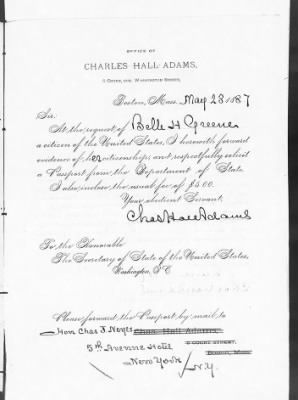 OFFICE OF
CHARLES HALL ADAMS,
5 COURT, COR. WASHINGTON STREET,
Boston, Mass. May 23 1887
Sir:
At the request of Belle H Greene
a citizen of the United States, I herewith forward
evidence of her citizenship and respectfully solicit
a Passport from the Department of State.
I also inclose the usual fee of $5.00.
Your obedient Servant,
Chas Hall Adams
To the Honorable
The Secretary of State of the United States,
Washington, D.C.
Please forward the Passport by mail to
Hon Chas J. Noyes Chas. Hall Adams,
5th Avenue Hotel 5 COURT STREET,
Boston, Mass.
New York N.Y.